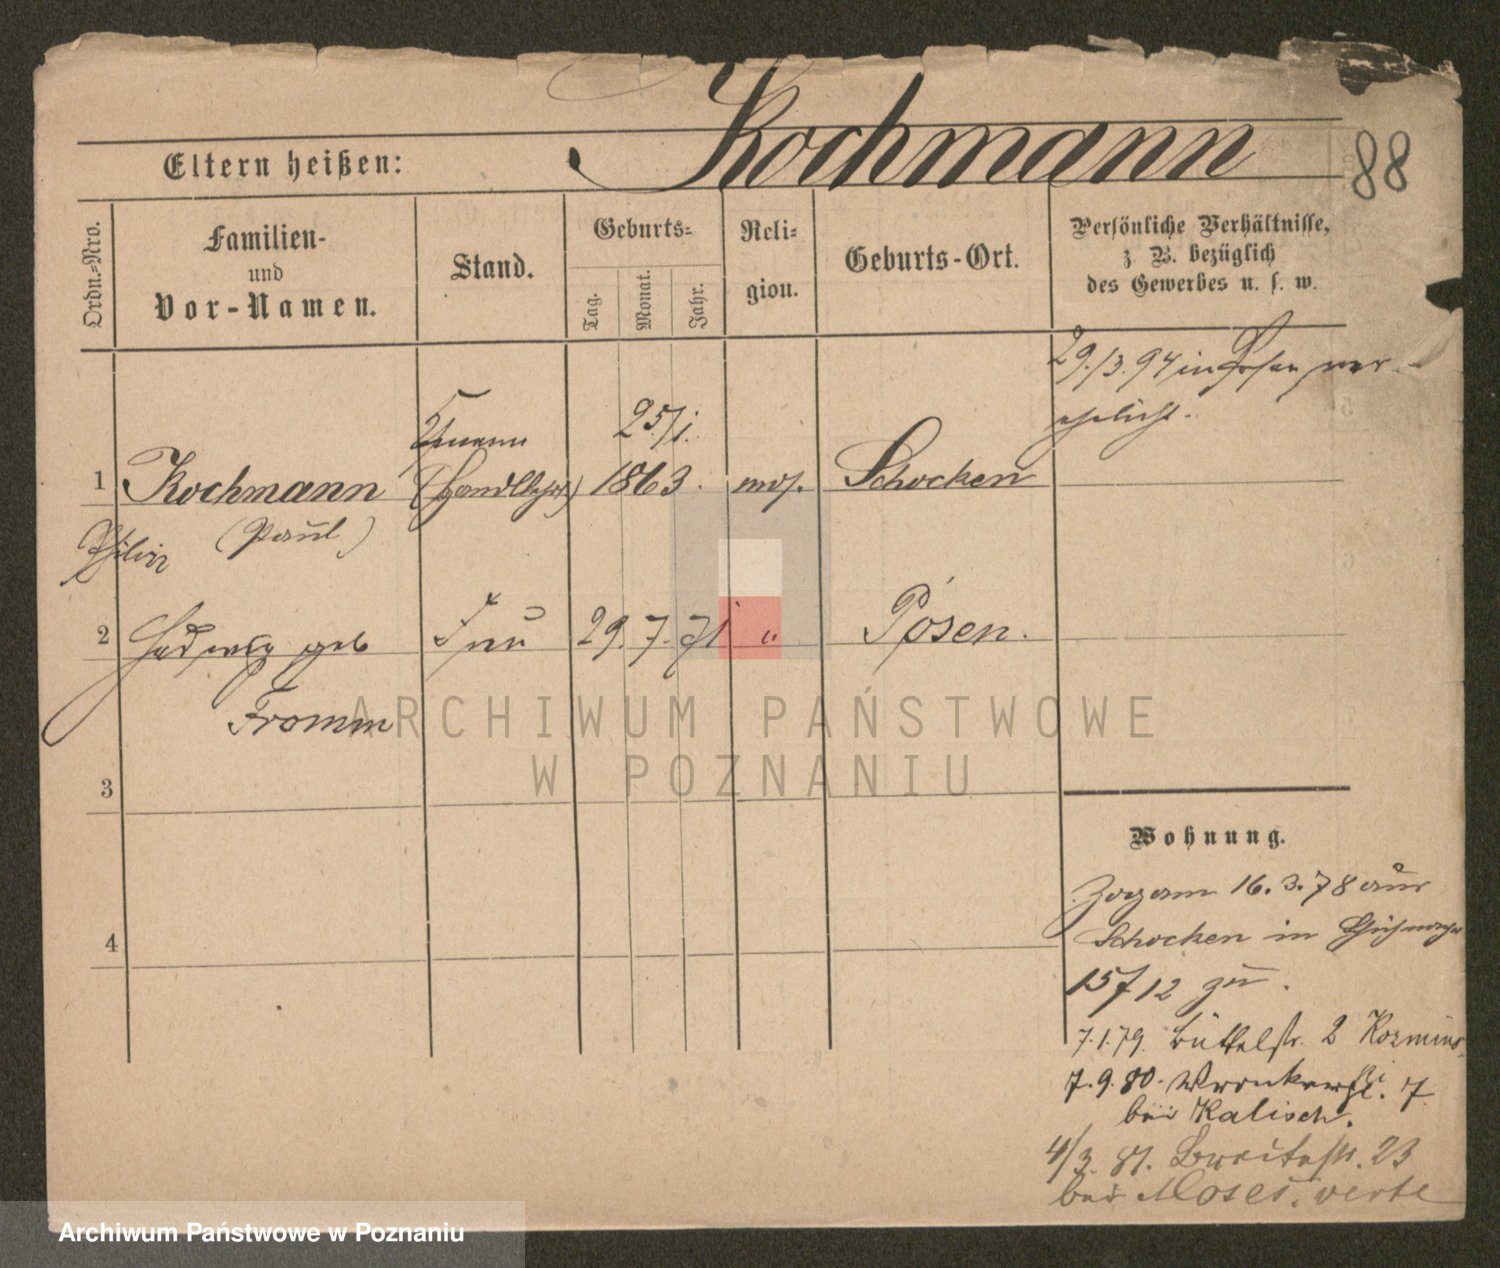 Kochmann
88
Eltern heißen:
Ordn.-Nro.
Familien-
und
Vor-Namen.
Stand.
Geburts-
Tag.
Monat.
Jahr.
Reli-
gion.
Geburts-Ort.
Persönliche Verhältnisse,
z. B. bezüglich
des Gewerbes u. s. w.
29./3.94 in Posen ver-
ehelicht.
25/1.
1 Kochmann 1863. mos. Schocken
(Paul)
2 Hedwig geb Frau 29. 7. 71 " Posen.
Fromm
3
4
Wohnung.
Zog am 16.3.78 aus
Schocken in
157 12 zu.
7.1.79. Büttelstr. 2
7.9.80. Wronkerstr. 7
bei Kalisch.
4/3. 81. Breitestr. 23
bei Moses. verte
ARCHIWUM PAŃSTWOWE
W POZNANIU
Archiwum Państwowe w Poznaniu